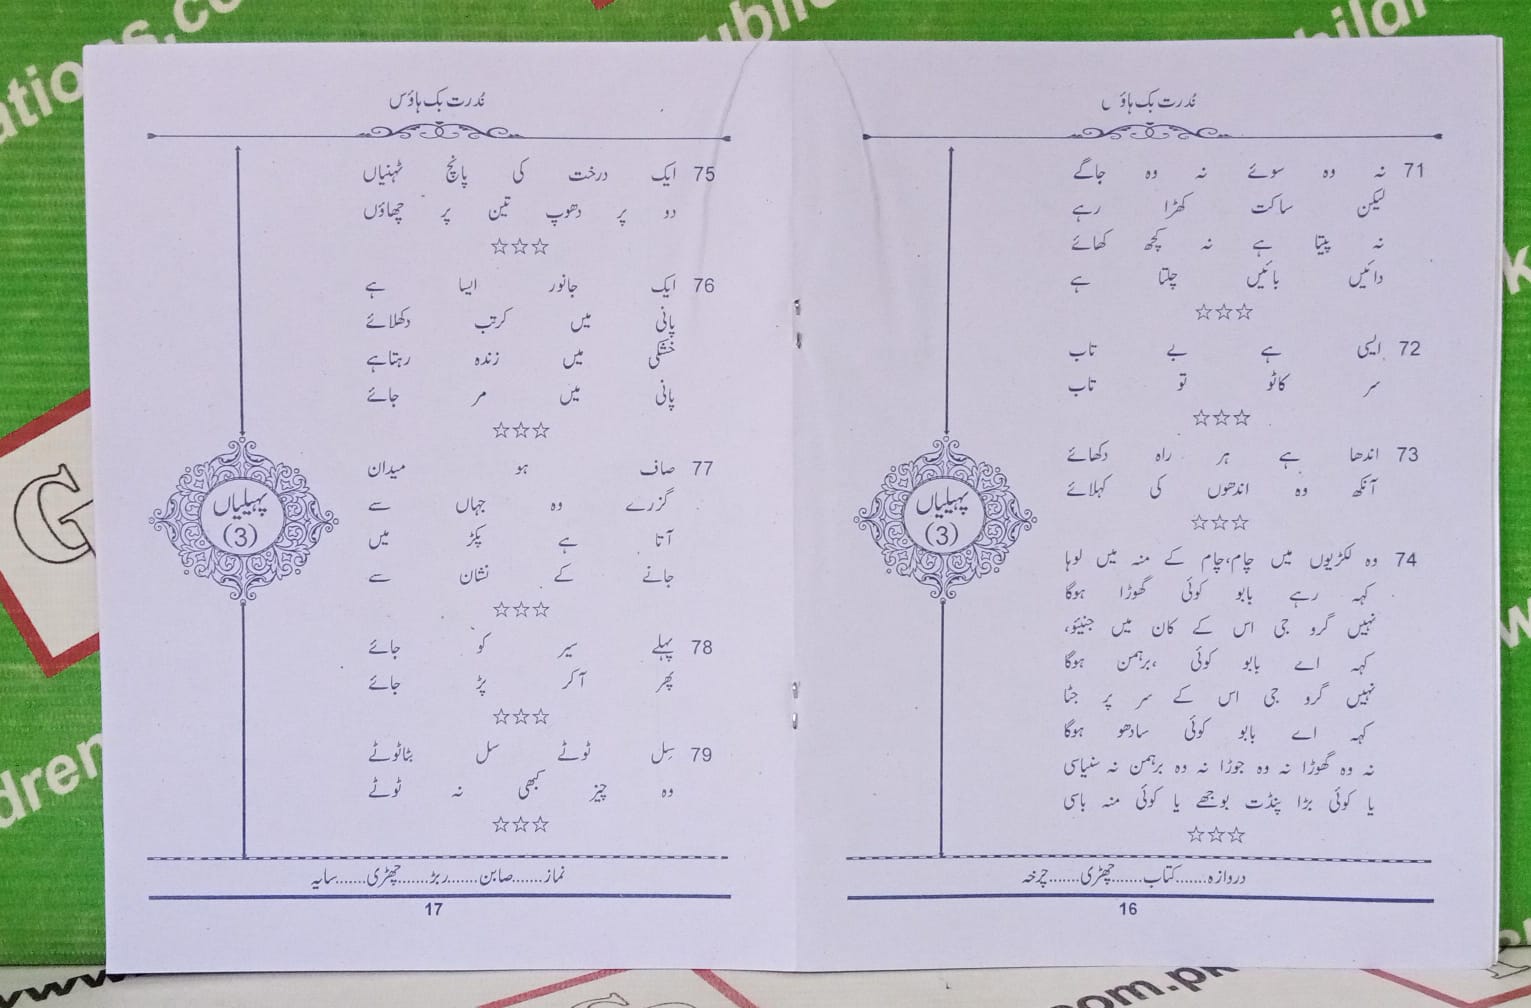 نُدرت بک ہاؤس
71 نہ وہ سوئے نہ وہ جاگے
لیکن ساکت کھڑا رہے
نہ پیتا ہے نہ کچھ کھائے
دائیں بائیں چلتا ہے
☆☆☆
72 ایسی ہے بے تاب
سر کاٹو تو تاب
☆☆☆
73 اندھا ہے ہر راہ دکھائے
آنکھ وہ اندھوں کی کہلائے
☆☆☆
74 وہ لکڑیوں میں چام،چام کے منہ میں لوہا
کہہ رہے بابو کوئی گھوڑا ہوگا
نہیں گرو جی اس کے کان میں جنیئو،
کہہ اے بابو کوئی ،برہمن ہوگا
نہیں گرو جی اس کے سر پر جٹا
کہہ اے بابو کوئی سادھو ہوگا
نہ وہ گھوڑا نہ وہ جوڑا نہ وہ برہمن نہ سنیاسی
یا کوئی بڑا پنڈت بوجھے یا کوئی منہ باسی
☆☆☆
پہیلیاں
(3)
دروازہ.......کتاب.......چھڑی.......چرخہ
16
نُدرت بک ہاؤس
75 ایک درخت کی پانچ ٹہنیاں
دو پر دھوپ تین پر چھاؤں
☆☆☆
76 ایک جانور ایسا ہے
پانی میں کرتب دکھلائے
خشکی میں زندہ رہتاہے
پانی میں مر جائے
☆☆☆
77 صاف ہو میدان
گزرے وہ جہاں سے
آتا ہے پکڑ میں
جانے کے نشان سے
☆☆☆
78 پہلے سیر کو جائے
پھر آکر پڑ جائے
☆☆☆
79 سِل ٹوٹے سل بٹاٹوٹے
وہ چیز کبھی نہ ٹوٹے
☆☆☆
پہیلیاں
(3)
نماز.......صابن.......ربڑ.......چھڑی.......سایہ
17